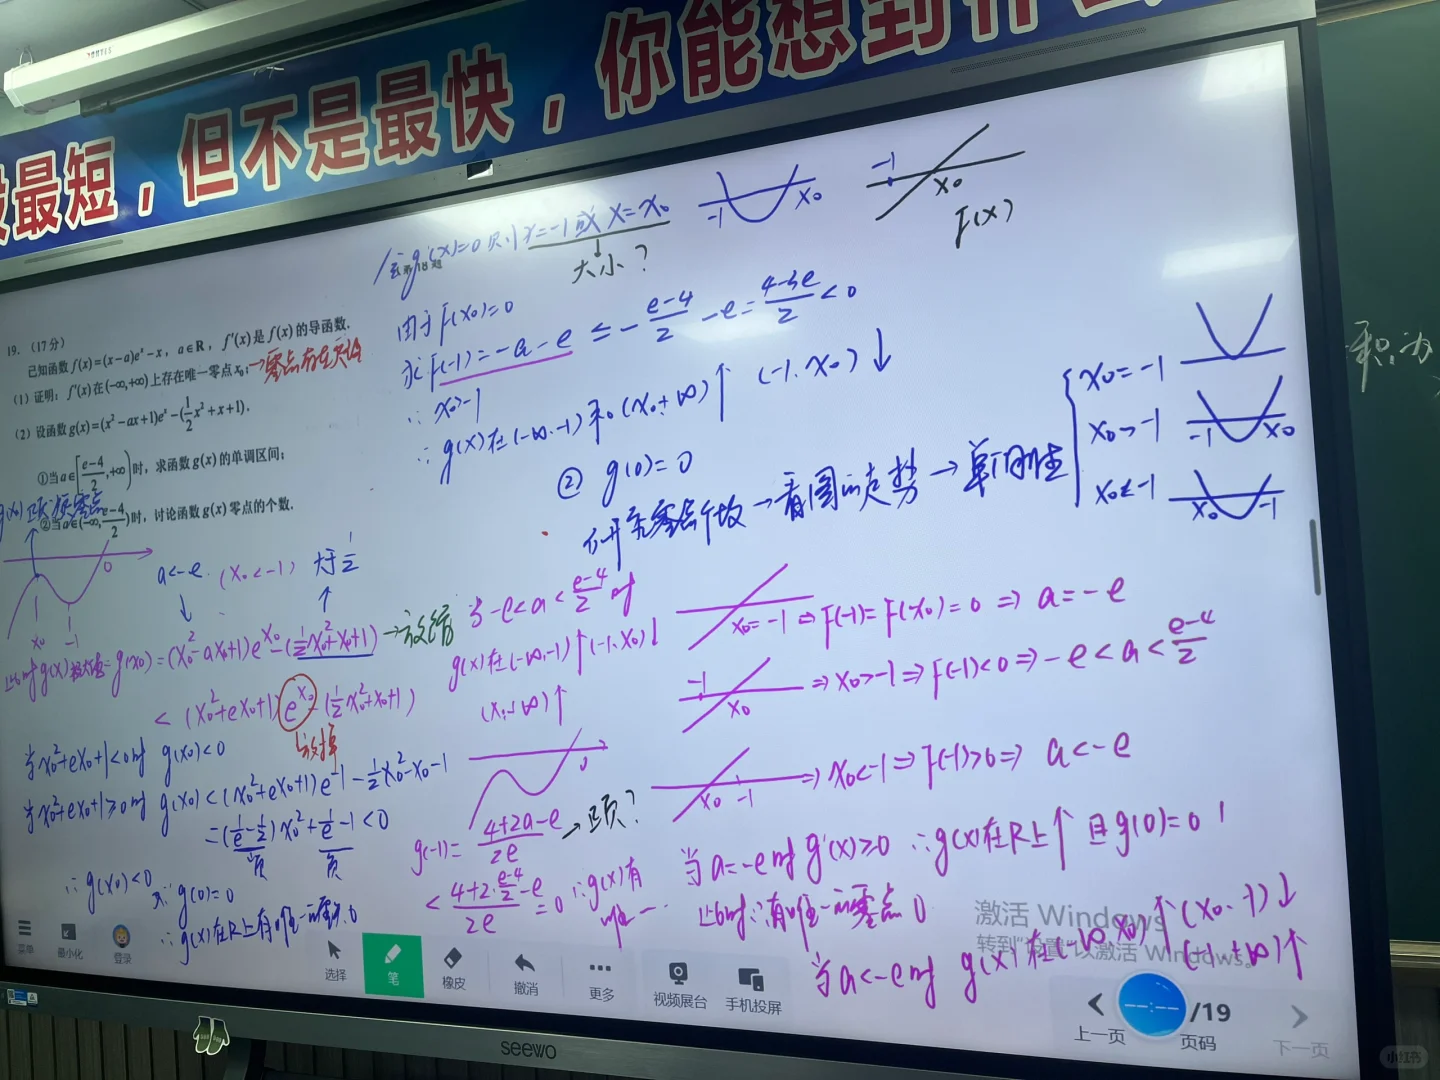 最短，但不是最快，你能想到什么
19.（17分）
已知函数 f(x)=(x-a)eˣ-x，a∈R，f'(x)是f(x)的导函数.
（1）证明：f'(x)在(-∞,+∞)上存在唯一零点x₀；→零点存在定理
（2）设函数g(x)=(x²-ax+1)eˣ-(1/2x²+x+1).
①当a∈[e-4/2,+∞)时，求函数g(x)的单调区间；
②当a∈(-∞,e-4/2)时，讨论函数g(x)零点的个数.
g'(x)=0 则 x=-1或x=x₀
大小？
-1 x₀
-1 x₀ F(x)
由于F(x₀)=0
求F(-1)=-a-e≤-e-4/2-e=4-3e/2<0
∴x₀>-1
∴g(x)在(-∞,-1)和(x₀,+∞)↑ (-1,x₀)↓
② g(0)=0
研究零点个数→看图的走势→单调性
x₀=-1
x₀>-1 -1 x₀
x₀<-1 x₀ -1
x₀ -1 0
a<-e (x₀<-1) 大于1/2
此时g(x)极大值=g(x₀)=(x₀²-ax₀+1)e^x₀-(1/2x₀²+x₀+1)→放缩
<(x₀²+ex₀+1)e^x₀-(1/2x₀²+x₀+1)
放掉
当x₀²+ex₀+1<0时 g(x₀)<0
当x₀²+ex₀+1≥0时 g(x₀)<(x₀²+ex₀+1)e⁻¹-1/2x₀²-x₀-1
=(1/e-1/2)x₀²+1/e-1<0
负 负
∴g(x₀)<0 又∵g(0)=0
∴g(x)在R上有唯一的零点0
当-e<a<e-4/2时
g(x)在(-∞,-1)↑(-1,x₀)↓
(x₀,+∞)↑
0
g(-1)=4+2a-e/2e→正负？
<4+2·e-4/2-e/2e=0 ∴g(x)有
唯一
x₀=-1⇒F(-1)=F(x₀)=0⇒a=-e
-1 x₀ ⇒x₀>-1⇒F(-1)<0⇒-e<a<e-4/2
x₀ -1 ⇒x₀<-1⇒F(-1)>0⇒a<-e
当a=-e时g'(x)≥0 ∴g(x)在R上↑且g(0)=0
此时有唯一的零点0
当a<-e时 g(x)在(-∞,x₀)↑(x₀,-1)↓
(-1,+∞)↑
激活 Windows
转到"设置"以激活 Windows。
菜单
最小化
登录
选择
笔
橡皮
撤消
更多
视频展台
手机投屏
上一页
/19
页码
下一页
seewo
小红书